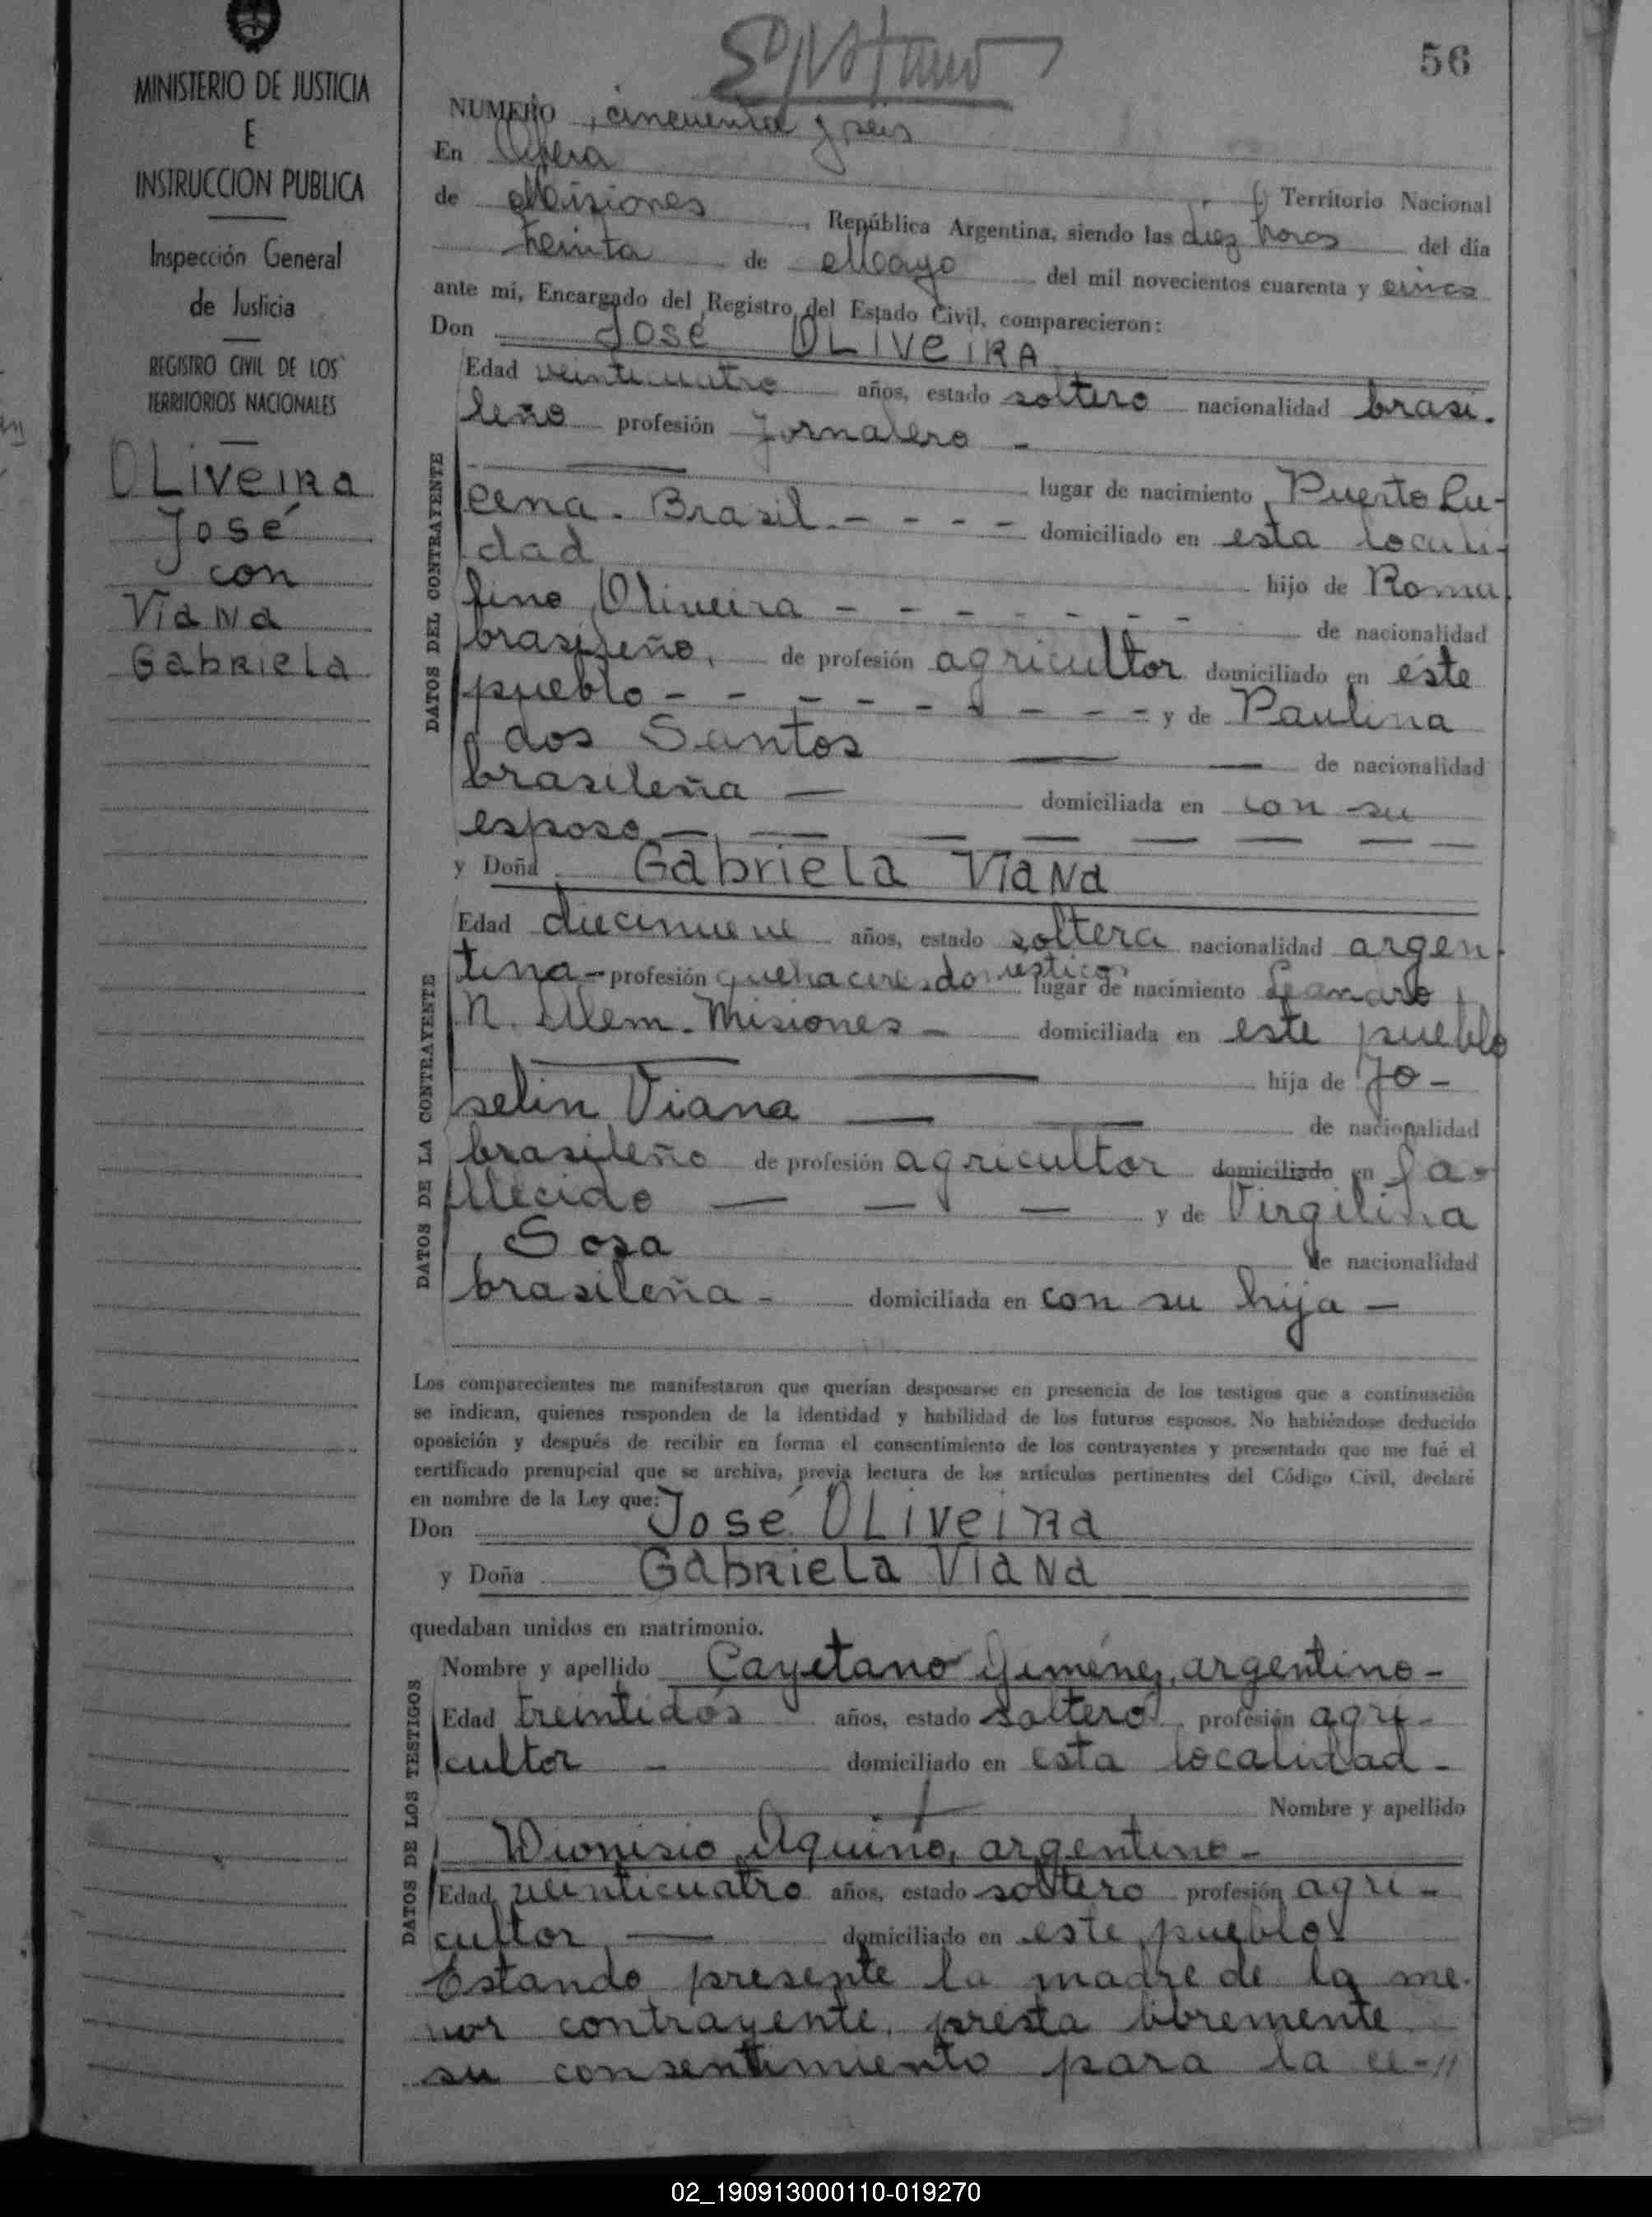 56
MINISTERIO DE JUSTICIA
E
INSTRUCCION PUBLICA
Inspección General
de Justicia
REGISTRO CIVIL DE LOS
TERRITORIOS NACIONALES
OLiveira
José
con
Viana
Gabriela
NUMERO cincuenta y seis
En Obera
de Misiones Territorio Nacional
República Argentina, siendo las diez horas del día
treinta de Mayo del mil novecientos cuarenta y cinco
ante mí, Encargado del Registro del Estado Civil, comparecieron:
Don José OLIVEIRA
Edad veinticuatro años, estado soltero nacionalidad brasi-
leño profesión Jornalero -
lugar de nacimiento Puerto Lu-
cena - Brasil - - - - domiciliado en esta locali-
dad hijo de Romu
fino Oliveira - - - - - - - de nacionalidad
brasileño, de profesión agricultor domiciliado en éste
pueblo - - - - - - - - - y de Paulina
dos Santos de nacionalidad
brasileña — domiciliada en con su
esposo — — — — — — — —
y Doña Gabriela Viana
Edad diecinueve años, estado soltera nacionalidad argen-
tina - profesión quehaceres domesticos lugar de nacimiento Leandro
N. Alem - Misiones - domiciliada en este pueblo
hija de Jo-
selin Viana — — de nacionalidad
brasileño de profesión agricultor domiciliado en fa-
llecido — — — y de Virgilina
Sosa de nacionalidad
brasileña - domiciliada en con su hija —
Los comparecientes me manifestaron que querían desposarse en presencia de los testigos que a continuación
se indican, quienes responden de la identidad y habilidad de los futuros esposos. No habiéndose deducido
oposición y después de recibir en forma el consentimiento de los contrayentes y presentado que me fué el
certificado prenupcial que se archiva, previa lectura de los artículos pertinentes del Código Civil, declaré
en nombre de la Ley que:
Don José OLiveira
y Doña Gabriela Viana
quedaban unidos en matrimonio.
Nombre y apellido Cayetano Jiménez, argentino -
Edad treintidós años, estado soltero profesión agri-
cultor - domiciliado en esta localidad -
Nombre y apellido
Dionisio Aquino, argentino -
Edad veinticuatro años, estado soltero profesión agri-
cultor — domiciliado en este pueblo
Estando presente la madre de la me-
nor contrayente, presta libremente
su consentimiento para la ce-//
DATOS DEL CONTRAYENTE
DATOS DE LA CONTRAYENTE
DATOS DE LOS TESTIGOS
02_190913000110-019270